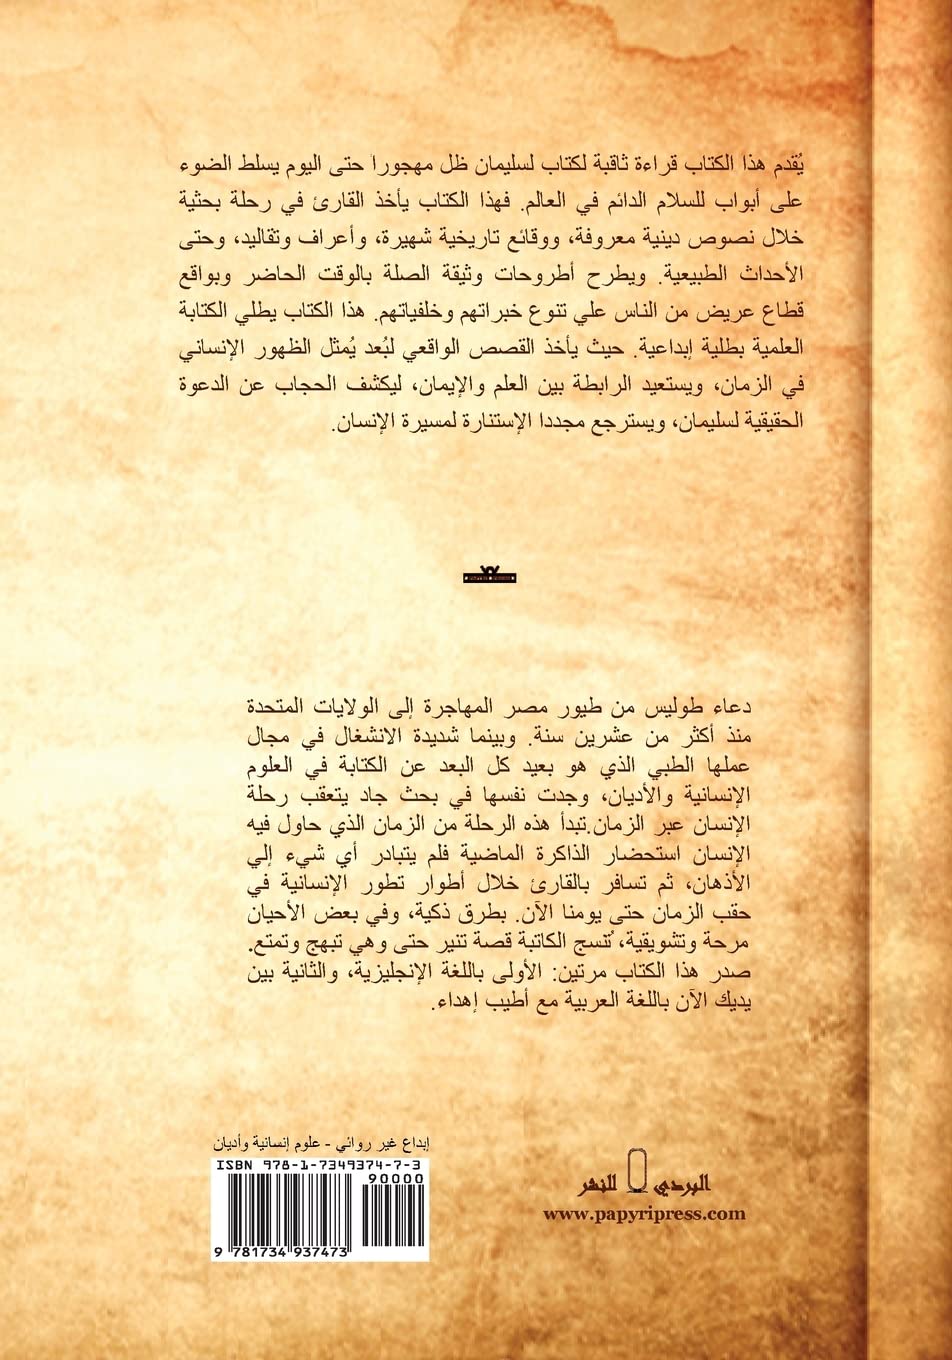 يُقدم هذا الكتاب قراءة ثاقبة لكتاب لسليمان ظل مهجورا حتى اليوم يسلط الضوء
على أبواب للسلام الدائم في العالم. فهذا الكتاب يأخذ القارئ في رحلة بحثية
خلال نصوص دينية معروفة، ووقائع تاريخية شهيرة، وأعراف وتقاليد، وحتى
الأحداث الطبيعية. ويطرح أطروحات وثيقة الصلة بالوقت الحاضر وبواقع
قطاع عريض من الناس علي تنوع خبراتهم وخلفياتهم. هذا الكتاب يطلي الكتابة
العلمية بطلية إبداعية. حيث يأخذ القصص الواقعي لبُعد يُمثل الظهور الإنساني
في الزمان، ويستعيد الرابطة بين العلم والإيمان، ليكشف الحجاب عن الدعوة
الحقيقية لسليمان، ويسترجع مجددا الإستنارة لمسيرة الإنسان.
دعاء طوليس من طيور مصر المهاجرة إلى الولايات المتحدة
منذ أكثر من عشرين سنة. وبينما شديدة الانشغال في مجال
عملها الطبي الذي هو بعيد كل البعد عن الكتابة في العلوم
الإنسانية والأديان، وجدت نفسها في بحث جاد يتعقب رحلة
الإنسان عبر الزمان.تبدأ هذه الرحلة من الزمان الذي حاول فيه
الإنسان استحضار الذاكرة الماضية فلم يتبادر أي شيء إلي
الأذهان، ثم تسافر بالقارئ خلال أطوار تطور الإنسانية في
حقب الزمان حتى يومنا الآن. بطرق ذكية، وفي بعض الأحيان
مرحة وتشويقية، تُنسج الكاتبة قصة تنير حتى وهي تبهج وتمتع.
صدر هذا الكتاب مرتين: الأولى باللغة الإنجليزية، والثانية بين
يديك الآن باللغة العربية مع أطيب إهداء.
إبداع غير روائي - علوم إنسانية وأديان
ISBN 978-1-7349374-7-3
90000
9 781734 937473
البردي للنشر
www.papyripress.com